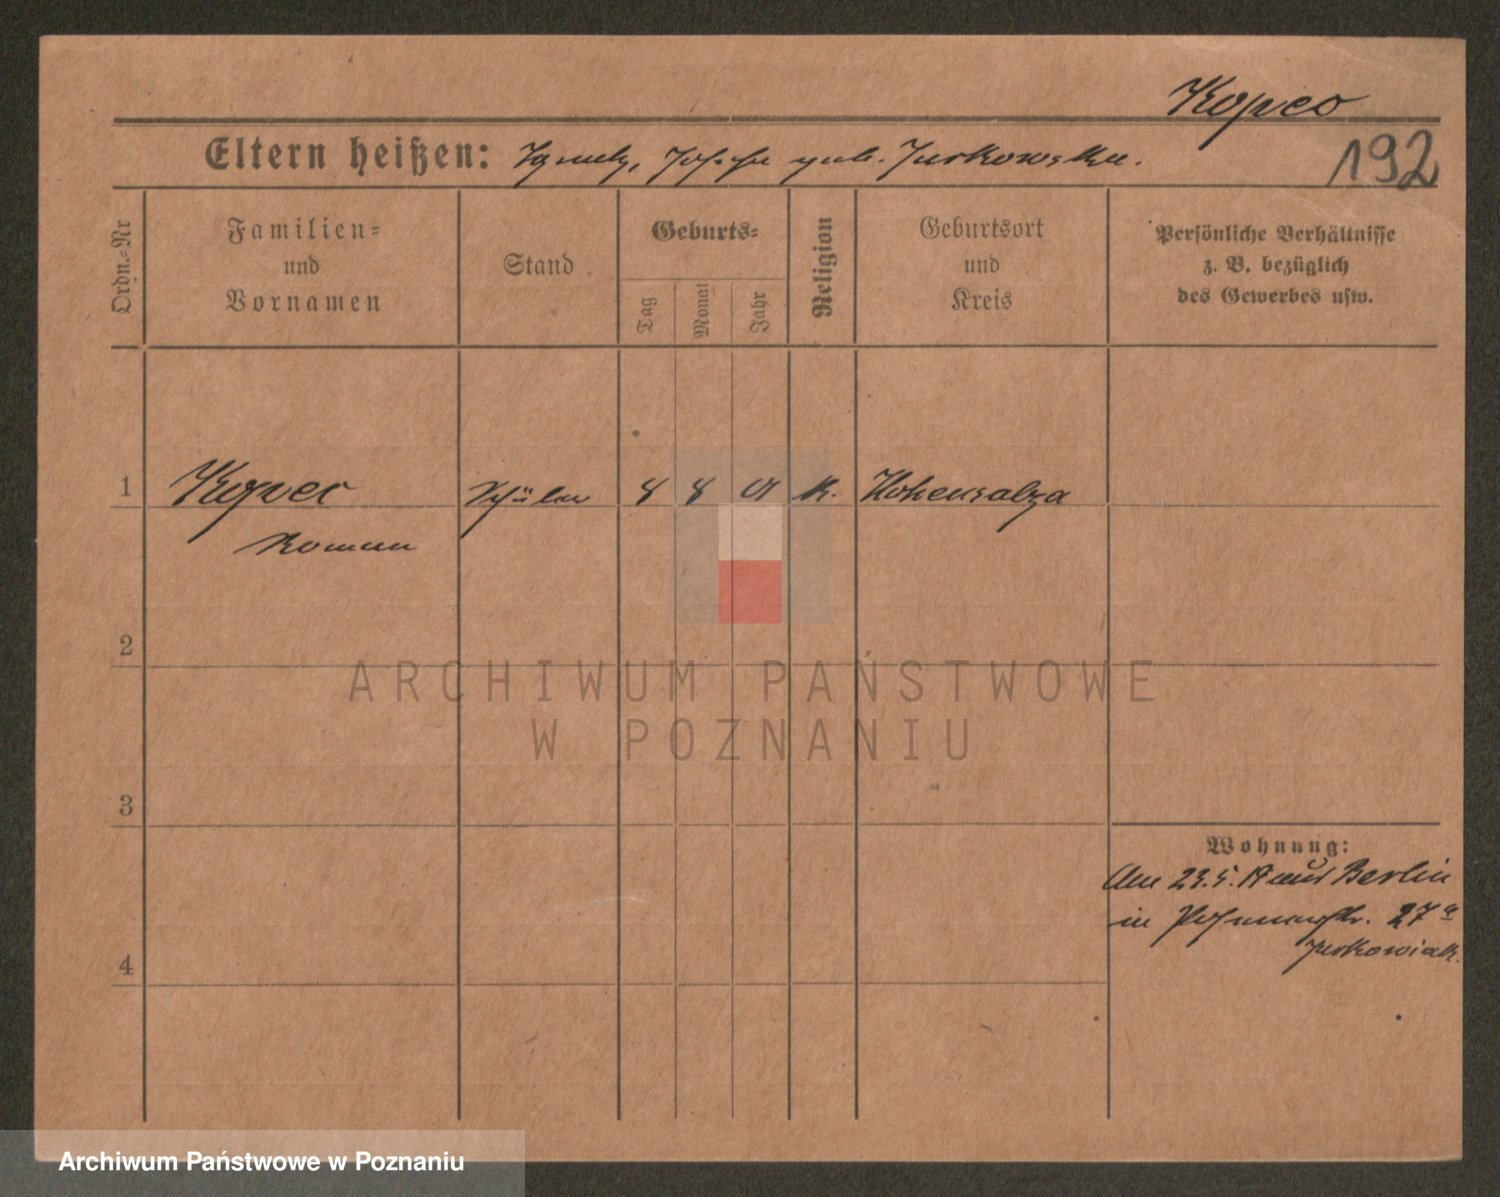 Kopec
Eltern heißen: Ignatz, Josefa geb. Jurkowska.
192
Ordn.-Nr
Familien-
und
Vornamen
Stand
Geburts-
Tag
Monat
Jahr
Religion
Geburtsort
und
Kreis
Persönliche Verhältnisse
z. B. bezüglich
des Gewerbes usw.
1
Kopec
Roman
Schüler
8
8
01
K.
Hohensalza
2
ARCHIWUM PAŃSTWOWE
W POZNANIU
3
Wohnung:
Am 23.5.19 aus Berlin
in 27a
Jurkowiak.
4
Archiwum Państwowe w Poznaniu